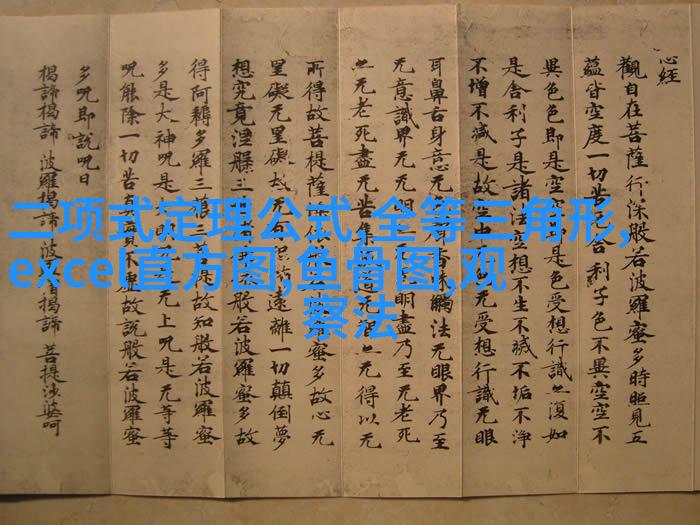 心経
觀自在菩薩行深般若波羅蜜多時照見五
蘊皆空度一切苦厄舍利子色不異空空不
異色色即是空空即是色受想行識亦復如
是舍利子是諸法空想不生不滅不垢不淨
不增不減是故空中色无受想行識无眼
耳鼻舌身意无香味觸法无眼界乃至
无意識界无无明无明盡乃至无老死
亦无老死盡无苦集无智亦无得以无
所得故菩提薩依般若波羅蜜多故心无
罣礙无罣礙故无有遠離一切顛倒夢
想究竟涅槃三般若波羅蜜多故
得阿耨多羅三藐三菩提故知般若波羅蜜
多是大神呪是大明呪是无上呪是无等等
呪能除一切苦真實不虛故說般若波羅蜜
多呪即說呪曰
揭諦揭諦 波羅揭諦 波羅僧揭諦 菩提薩婆呵
二项式定理公式,全等三角形,
excel直方图,鱼骨图,观
察法